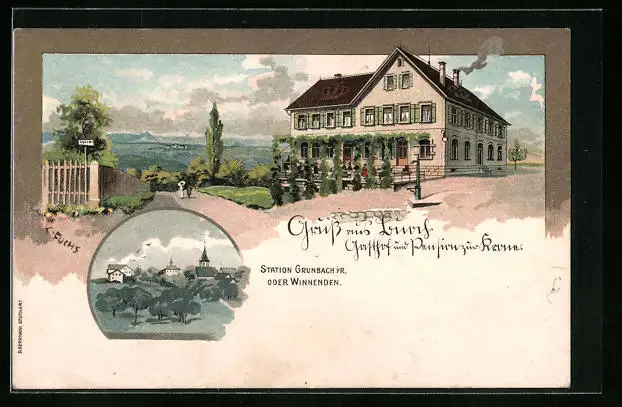 Gruß aus Buoch
Gasthof und Pension zur Krone.
STATION GRUNBACH i/R.
ODER WINNENDEN.
K. FUCHS